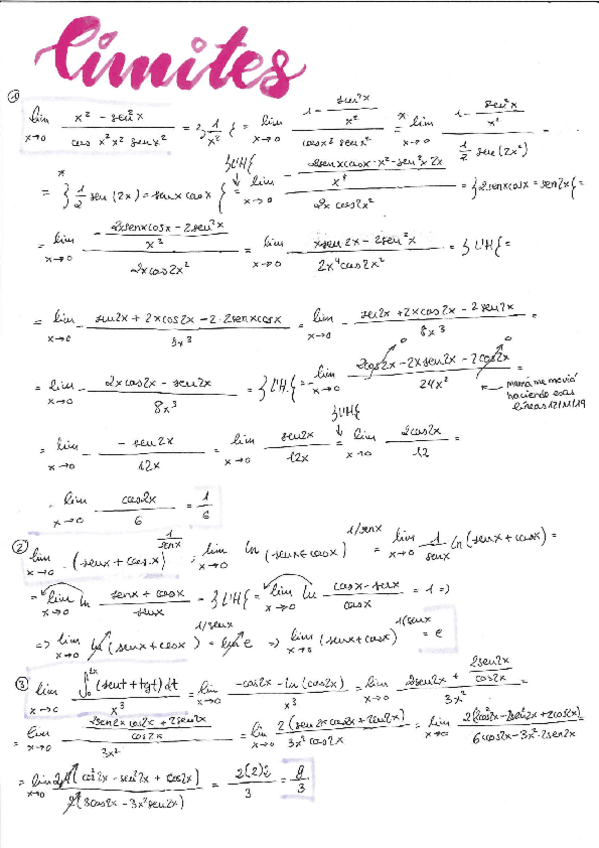 límites
① lim x→0 (x² - sen²x)/(cos x² x² sen x²) = }1/x²{ = lim x→0 (1 - sen²x/x²)/(cos x² sen x²) =* lim x→0 (1 - sen²x/x²)/(1/2 sen(2x²)) =
= *}1/2 sen(2x) = senx cosx{ = }L'H{ lim x→0 - ((2senxcosx·x² - sen²x 2x)/x⁴)/(2x cos2x²) = }2senxcosx = sen2x{ =
= lim x→0 - ((2xsenxcosx - 2sen²x)/x³)/(2xcos2x²) = lim x→0 - (xsen2x - 2sen²x)/(2x⁴cos2x²) = }L'H{ =
= lim x→0 - (sen2x + 2xcos2x - 2·2senxcosx)/(8x³) = lim x→0 - (sen2x + 2xcos2x - 2sen2x)/(8x³) =
= lim x→0 - (2xcos2x - sen2x)/(8x³) = }L'H{ = lim x→0 - (2cos2x - 2xsen2x - 2cos2x)/(24x²) =
mamá me movió haciendo esas líneas 12/11/19
= lim x→0 - (-sen2x)/(12x) = lim x→0 (sen2x)/(12x) = }L'H{ lim x→0 (2cos2x)/12 =
= lim x→0 (cos2x)/6 = 1/6
② lim x→0 (senx + cosx)^(1/senx) ; lim x→0 ln (senx + cosx)^(1/senx) = lim x→0 1/senx ln(senx + cosx) =
= lim x→0 ln (senx + cosx)/senx = }L'H{ = lim x→0 ln (cosx - senx)/cosx = 1 =>
=> lim x→0 ln (senx + cosx)^(1/senx) = ln e => lim x→0 (senx + cosx)^(1/senx) = e
③ lim x→0 (∫₀^2x (sent + tgt) dt)/x³ = lim x→0 (-cos2x - ln(cos2x))/x³ = lim x→0 (2sen2x + 2sen2x/cos2x)/(3x²) =
= lim x→0 ((2sen2x cos2x + 2sen2x)/cos2x)/(3x²) = lim x→0 (2(sen2x cos2x + 2sen2x))/(3x² cos2x) = lim x→0 (2(2cos²2x - 2sen²2x + 2cos2x))/(6cos2x - 3x²·2sen2x)
= lim x→0 (2·2(cos²2x - sen²2x + cos2x))/(2(3cos2x - 3x²sen2x)) = (2(2)2)/3 = 8/3